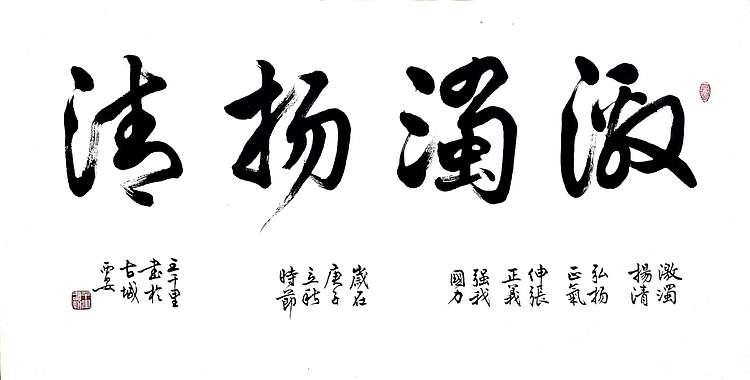 激濁扬清
激濁
揚清
弘扬
正氣
伸張
正義
强我
國力
歲在
庚子
立秋
時節
王千里
書於
古城
西安